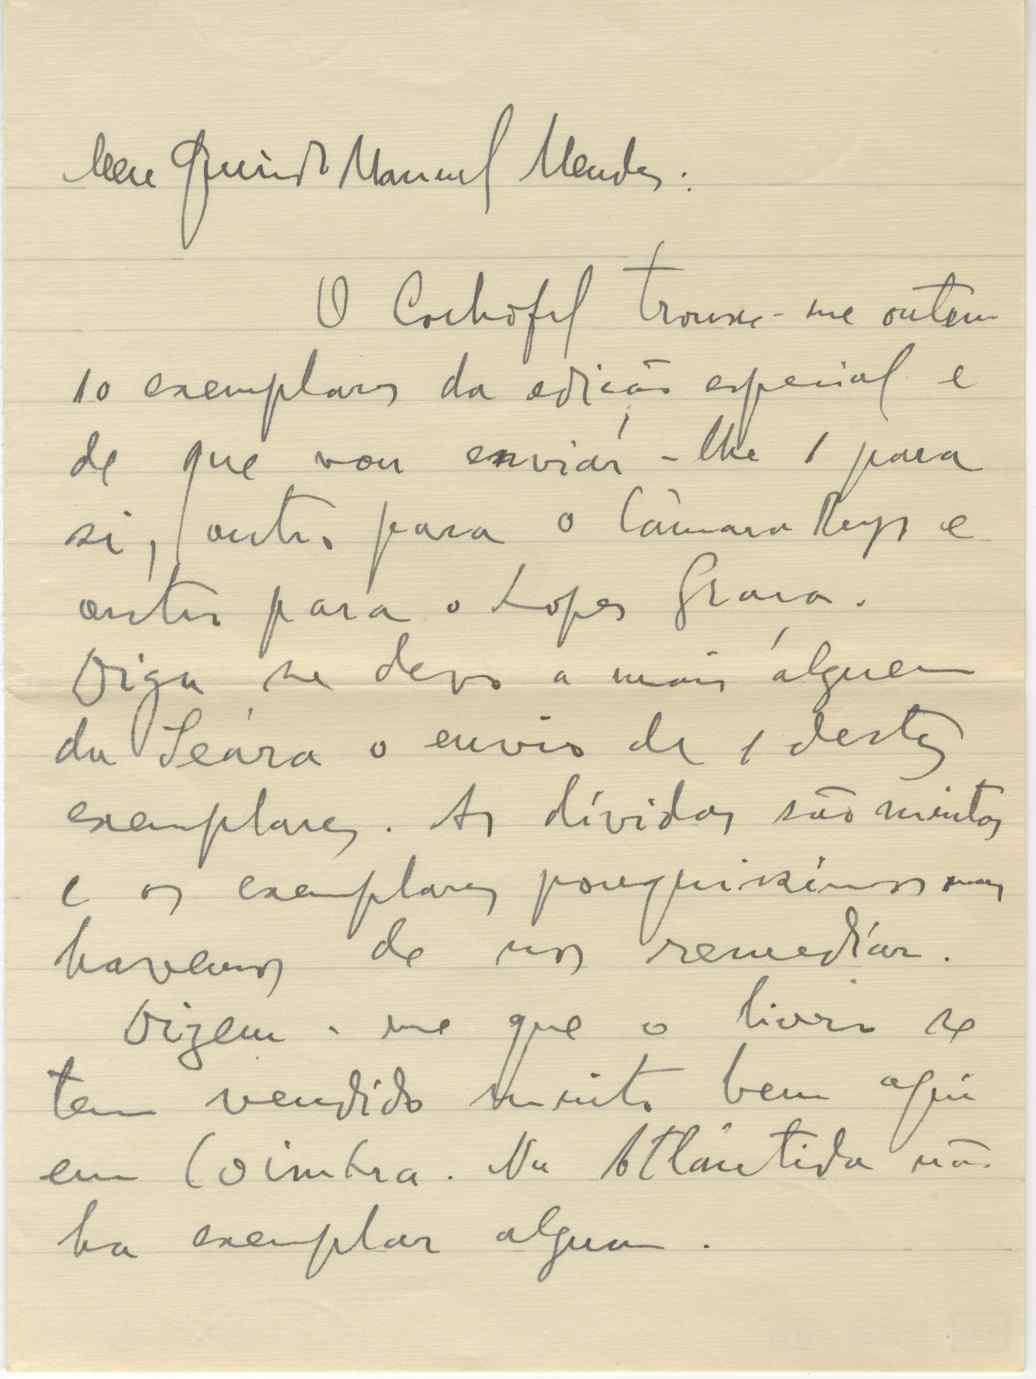 Meu Querido Manuel Mendes:
O Cochofel trouxe-me ontem
10 exemplares da edição especial e
de que vou enviár-lhe 1 para
si, outro para o Câmara Reys e
outro para o Lopes Graça.
Diga se devo a mais álguem
da Seára o envio de 1 destes
exemplares. As dívidas são muitas
e os exemplares pouquissímos mas
havemos de nos remedíar.
Dizem-me que o livro se
tem vendido muito bem aqui
em Coimbra. Na Atlântida não
ha exemplar algum.